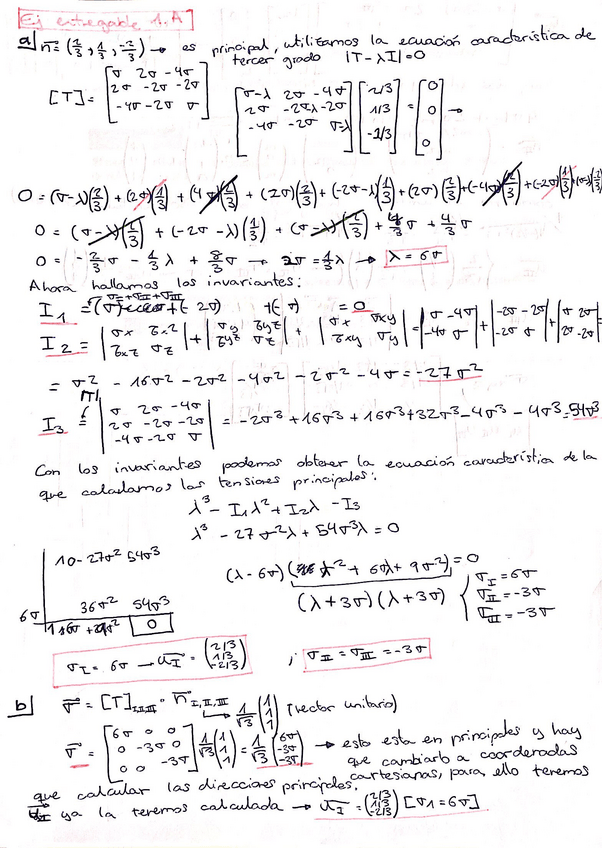 Ej entregable 1.A
a) n̄ = (2/3, 1/3, -2/3) → es principal, utilizamos la ecuación característica de
tercer grado |T-λI|=0
[T] = [σ 2σ -4σ; 2σ -2σ -2σ; -4σ -2σ σ] [σ-λ 2σ -4σ; 2σ -2σ-λ -2σ; -4σ -2σ σ-λ] [2/3; 1/3; -2/3] = [0; 0; 0] →
0 = (σ-λ)(2/3) + (2σ)(1/3) + (4σ)(2/3) + (2σ)(2/3) + (-2σ-λ)(1/3) + (2σ)(2/3) + (-4σ)(2/3) + (-2σ)(1/3) + (σ-λ)(2/3)
0 = (σ-λ)(2/3) + (-2σ-λ)(1/3) + (σ-λ)(2/3) + 4/3 σ + 4/3 σ
0 = -2/3 σ - 1/3 λ + 8/3 σ → 2σ = 1/3 λ → λ = 6σ
Ahora hallamos los invariantes:
σI + σII + σIII
I1 = (σ) + (-2σ) + (σ) = 0
I2 = |σx τxz; τxz σz| + |σy τyz; τyz σz| + |σx τxy; τxy σy| = |σ -4σ; -4σ σ| + |-2σ -2σ; -2σ σ| + |σ 2σ; 2σ -2σ| =
= σ² - 16σ² - 2σ² - 4σ² - 2σ² - 4σ = -27σ²
|T|
I3 = |σ 2σ -4σ; 2σ -2σ -2σ; -4σ -2σ σ| = -2σ³ + 16σ³ + 16σ³ + 32σ³ - 4σ³ - 4σ³ = 54σ³
Con los invariantes podemos obtener la ecuación característica de la
que calculamos las tensiones principales:
λ³ - I1λ² + I2λ - I3
λ³ - 27σ²λ + 54σ³λ = 0
1 0 -27σ² 54σ³
(λ-6σ)(λ² + 6σλ + 9σ²) = 0
6σ 36σ² 54σ³
(λ+3σ)(λ+3σ)
σI = 6σ
σII = -3σ
σIII = -3σ
0
σI = 6σ → uI = (2/3; 1/3; -2/3) ; σII = σIII = -3σ
b) σ̄ = [T]I,II,III · n̄ I,II,III
1/√3 (1; 1; 1) (vector unitario)
σ̄ = [6σ 0 0; 0 -3σ 0; 0 0 -3σ] 1/√3 (1; 1; 1) = 1/√3 (6σ; -3σ; -3σ) → esto esta en principales y hay
que cambiarlo a coordenadas
cartesianas, para ello tenemos
que calcular las direcciones principales.
uI ya la tenemos calculada → uI = (2/3; 1/3; -2/3) [σ1 = 6σ]